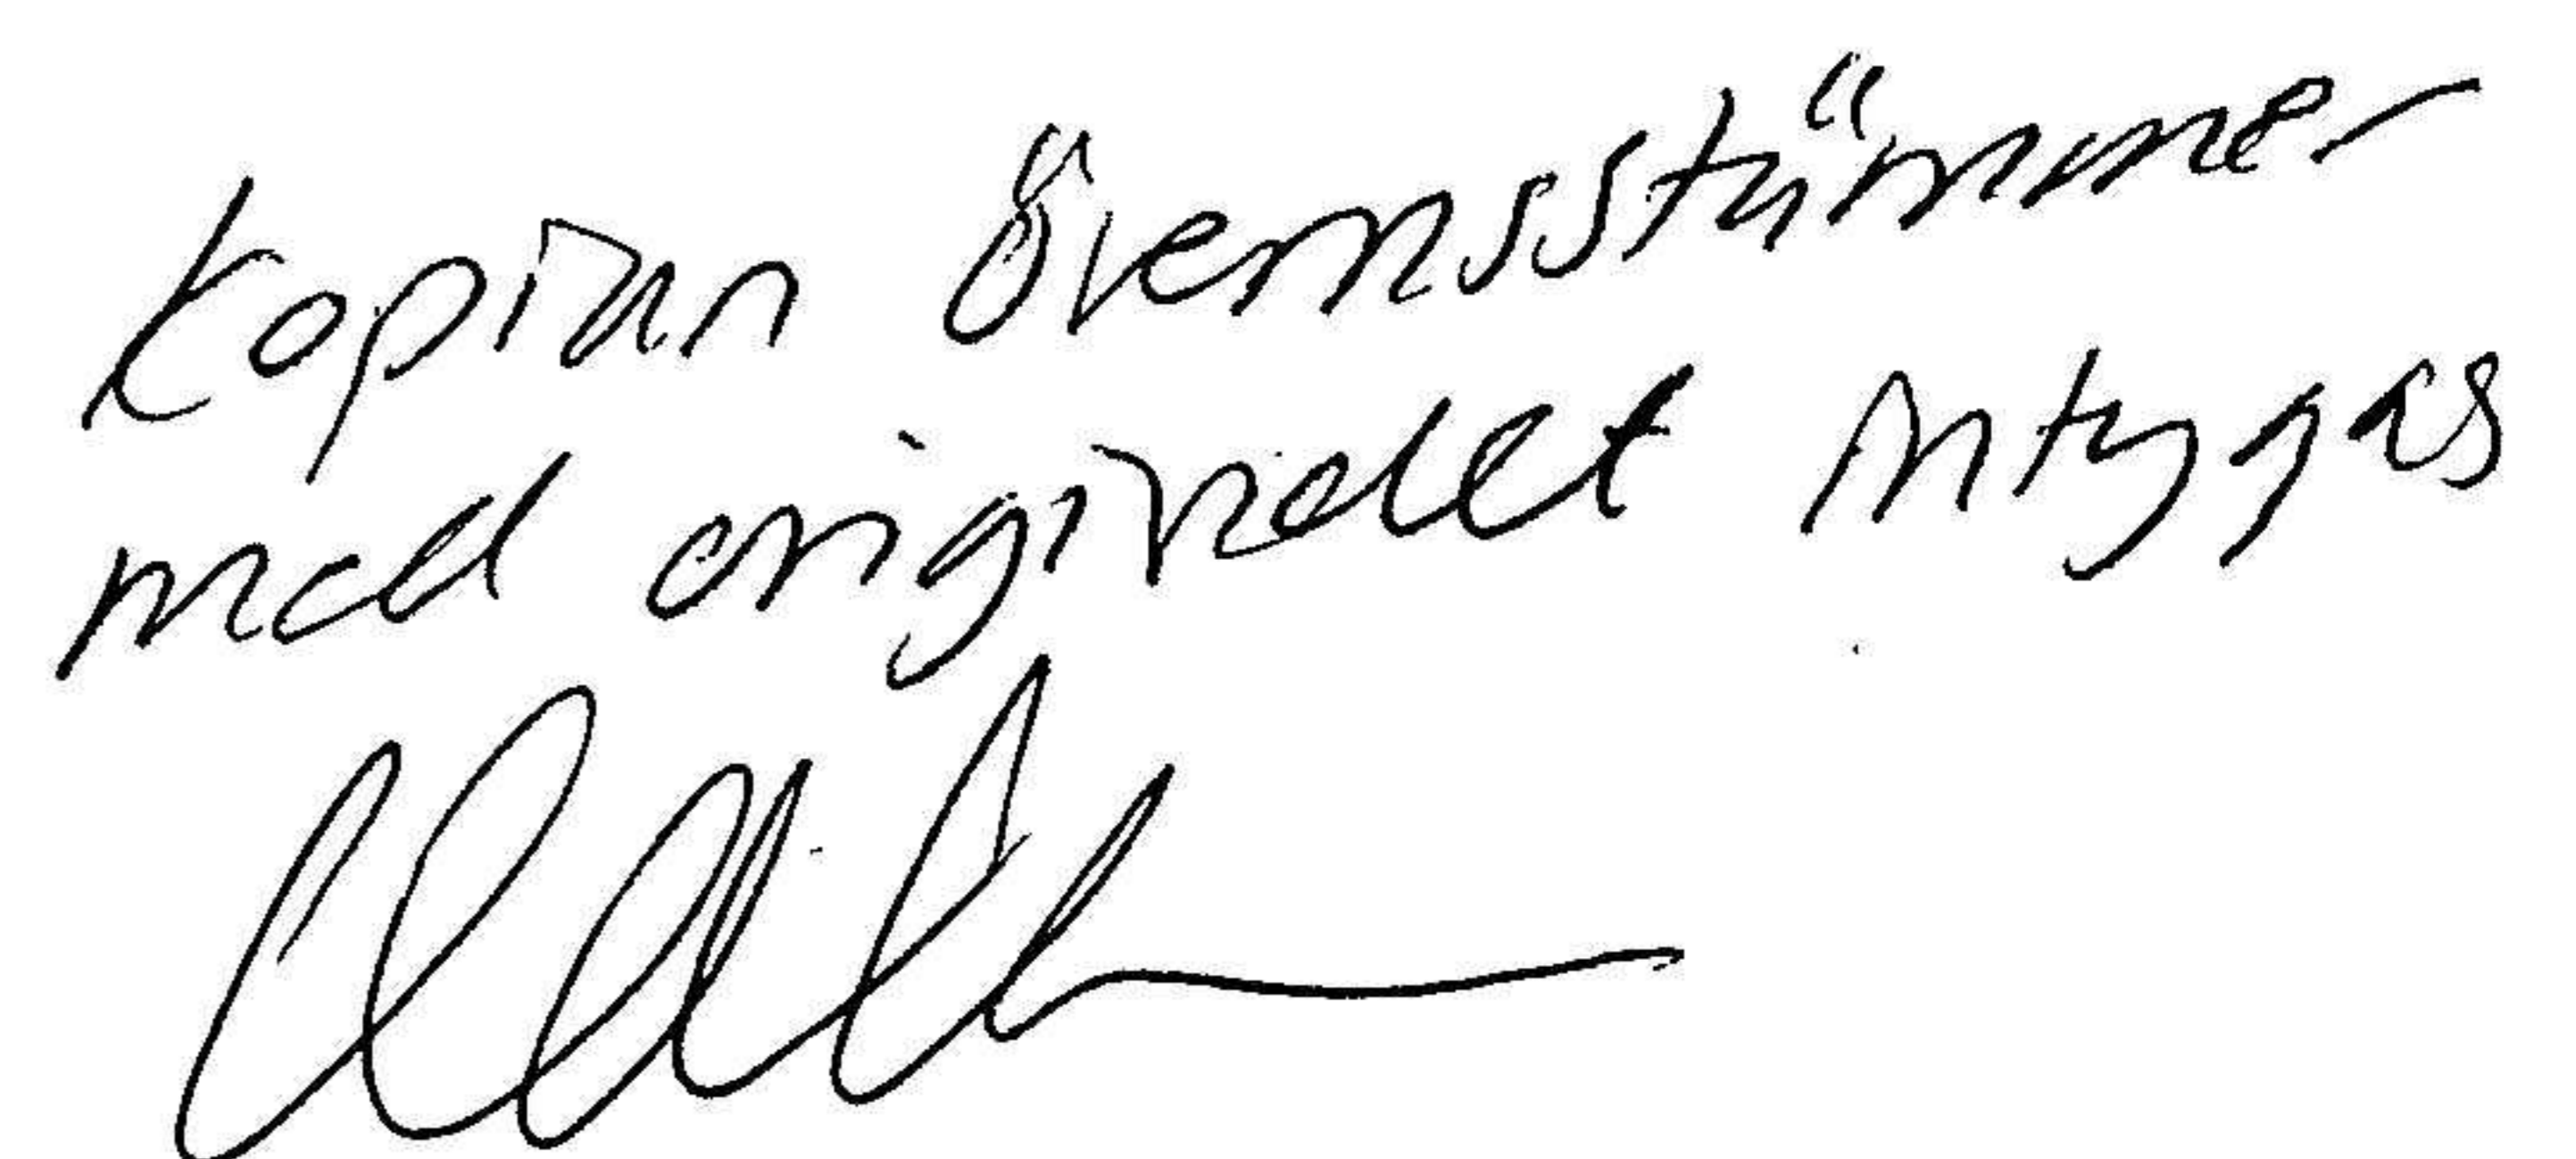 Kopian övernsstämmer
med originalet intygas